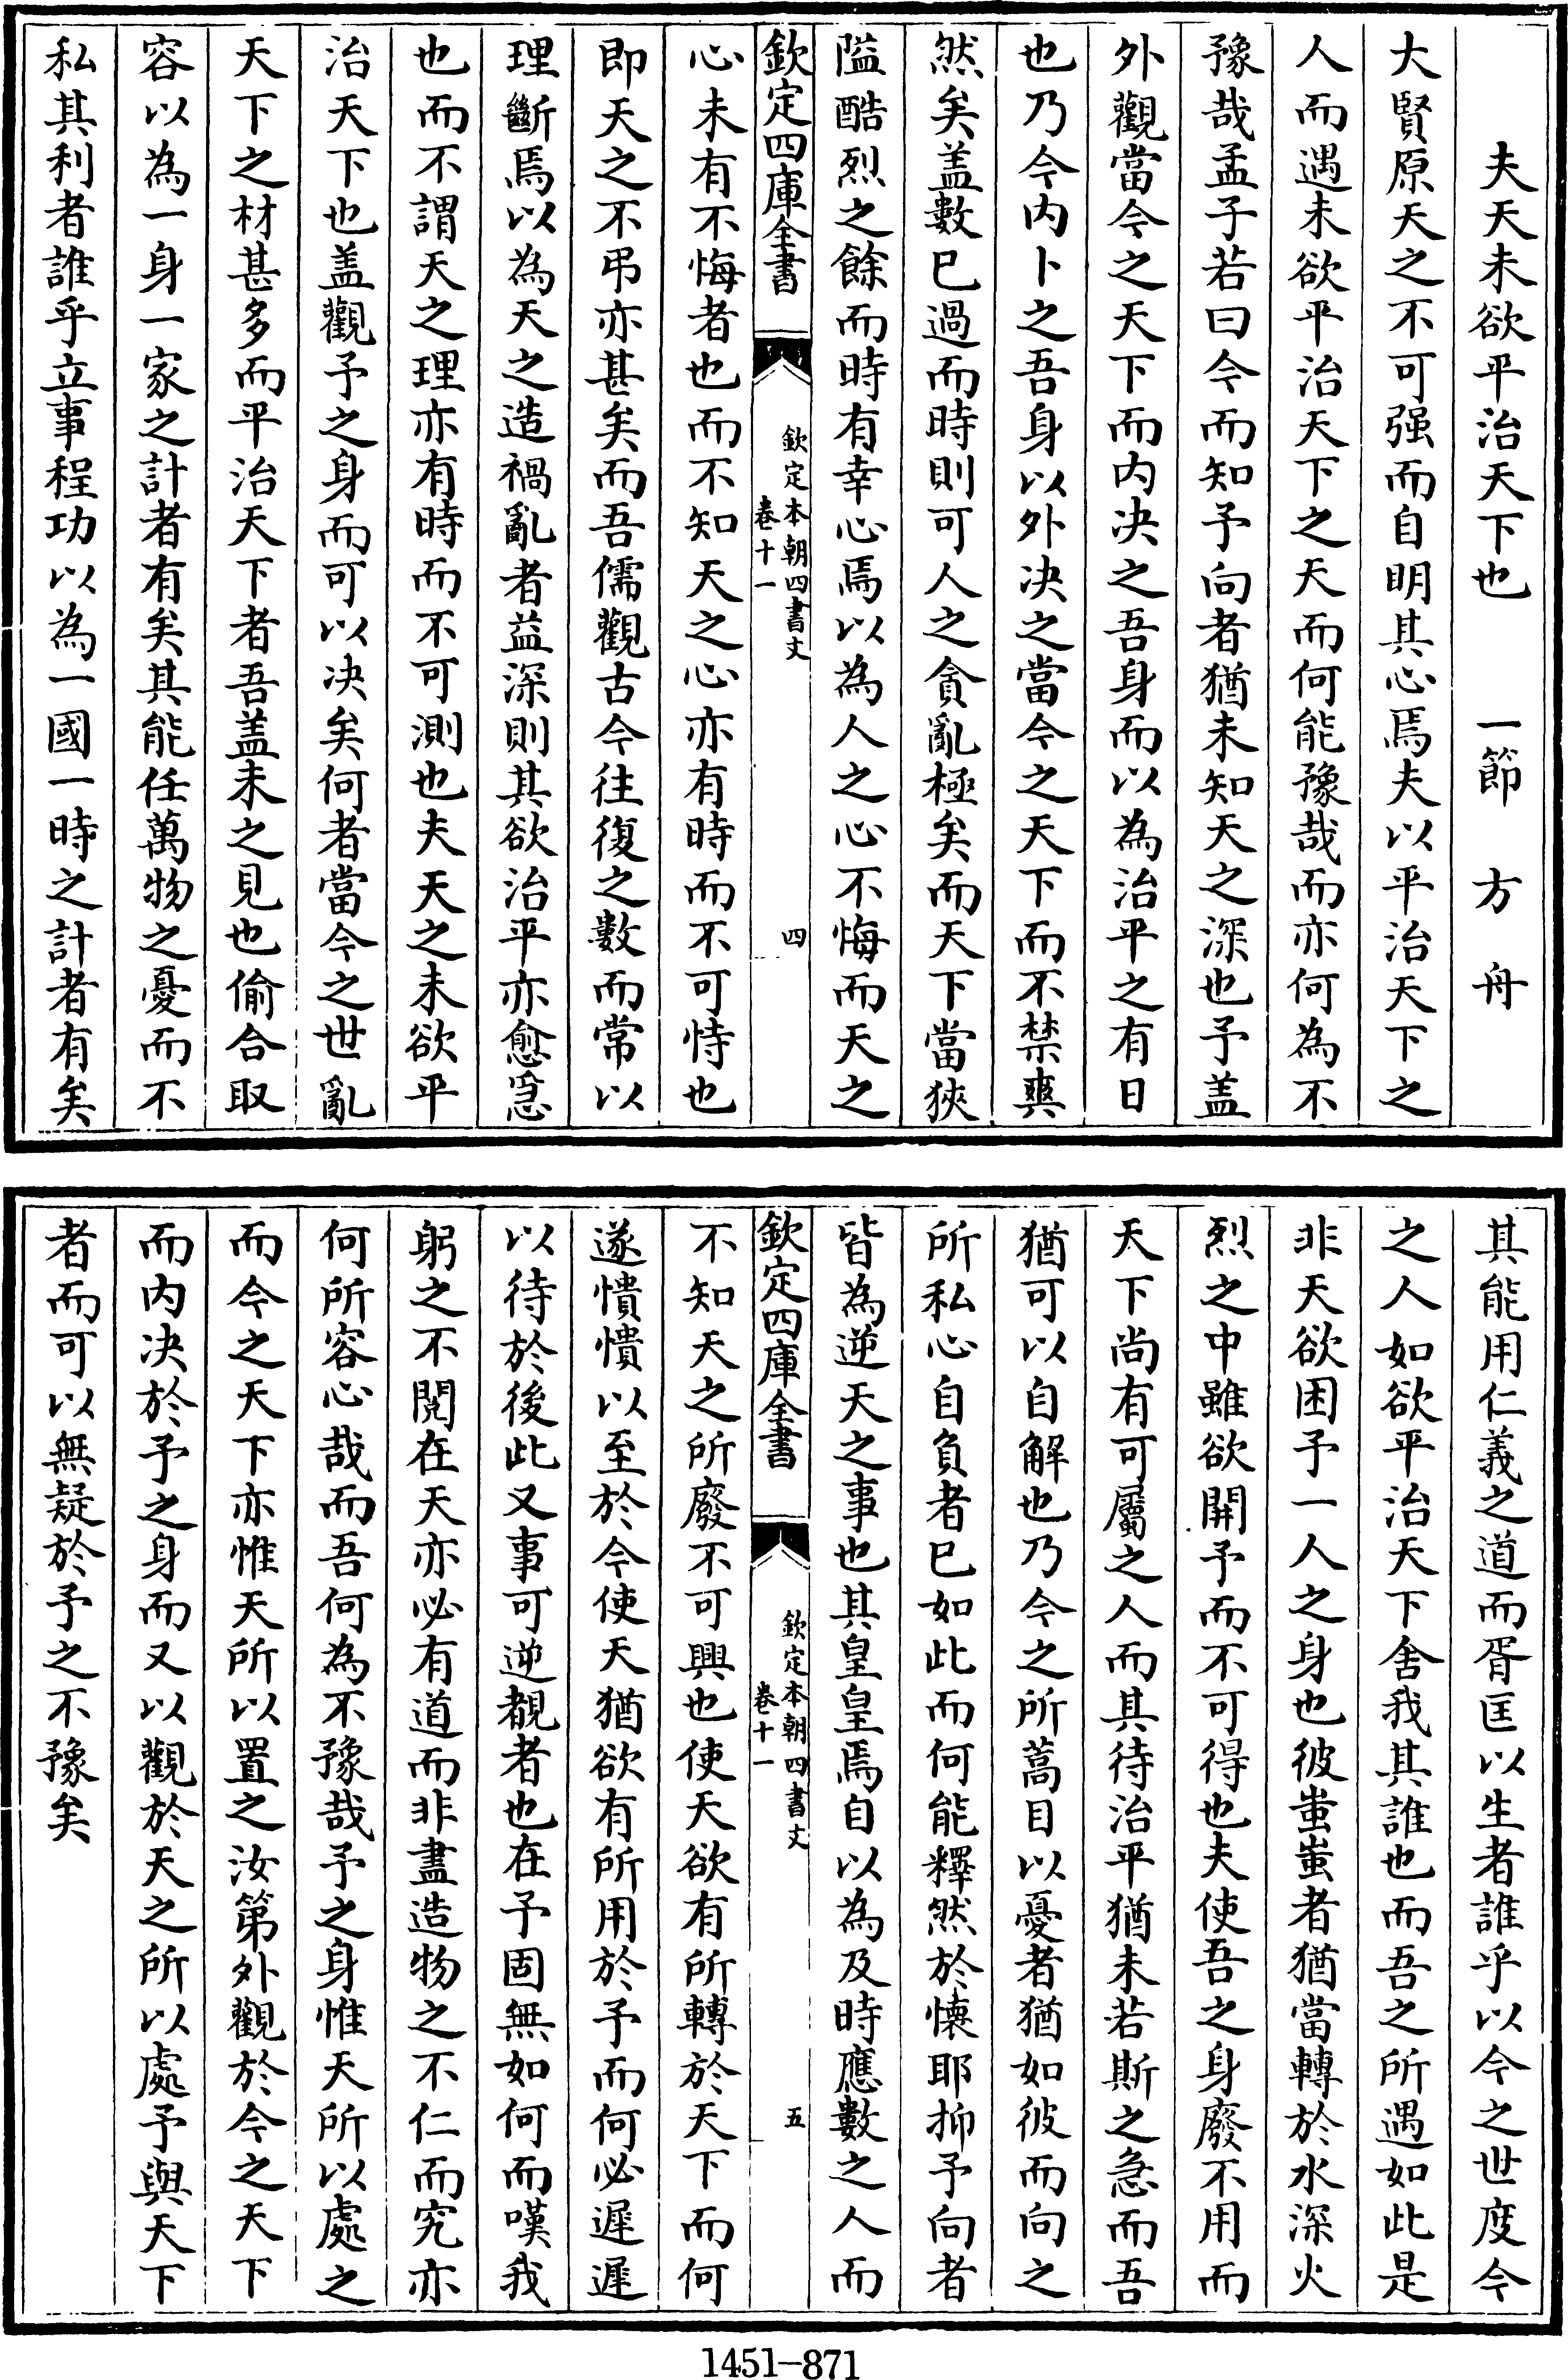 夫天未欲平治天下也　一節　方舟
大賢原天之不可强而自明其心焉夫以平治天下之
人而遇未欲平治天下之天而何能豫哉而亦何為不
豫哉孟子若曰今而知予向者猶未知天之深也予盖
外觀當今之天下而内决之吾身而以為治平之有日
也乃今内卜之吾身以外决之當今之天下而不禁爽
然矣盖數已過而時則可人之貪亂極矣而天下當狹
隘酷烈之餘而時有幸心焉以為人之心不悔而天之
欽定四庫全書
欽定本朝四書文
卷十一
四
心未有不悔者也而不知天之心亦有時而不可恃也
即天之不弔亦甚矣而吾儒觀古今往復之數而常以
理斷焉以為天之造禍亂者益深則其欲治平亦愈急
也而不謂天之理亦有時而不可測也夫天之未欲平
治天下也盖觀予之身而可以决矣何者當今之世亂
天下之材甚多而平治天下者吾盖未之見也偷合取
容以為一身一家之計者有矣其能任萬物之憂而不
私其利者誰乎立事程功以為一國一時之計者有矣
其能用仁義之道而胥匡以生者誰乎以今之世度今
之人如欲平治天下舍我其誰也而吾之所遇如此是
非天欲困予一人之身也彼蚩蚩者猶當轉於水深火
烈之中雖欲開予而不可得也夫使吾之身廢不用而
天下尚有可屬之人而其待治平猶未若斯之急而吾
猶可以自解也乃今之所蒿目以憂者猶如彼而向之
所私心自負者已如此而何能釋然於懐耶抑予向者
皆為逆天之事也其皇皇焉自以為及時應數之人而
欽定四庫全書
欽定本朝四書文
卷十一
五
不知天之所廢不可興也使天欲有所轉於天下而何
遂憒憒以至於今使天猶欲有所用於予而何必遲遲
以待於後此又事可逆覩者也在予固無如何而嘆我
躬之不閱在天亦必有道而非盡造物之不仁而究亦
何所容心哉而吾何為不豫哉予之身惟天所以處之
而今之天下亦惟天所以置之汝第外觀於今之天下
而内决於予之身而又以觀於天之所以處予與天下
者而可以無疑於予之不豫矣
1451-871